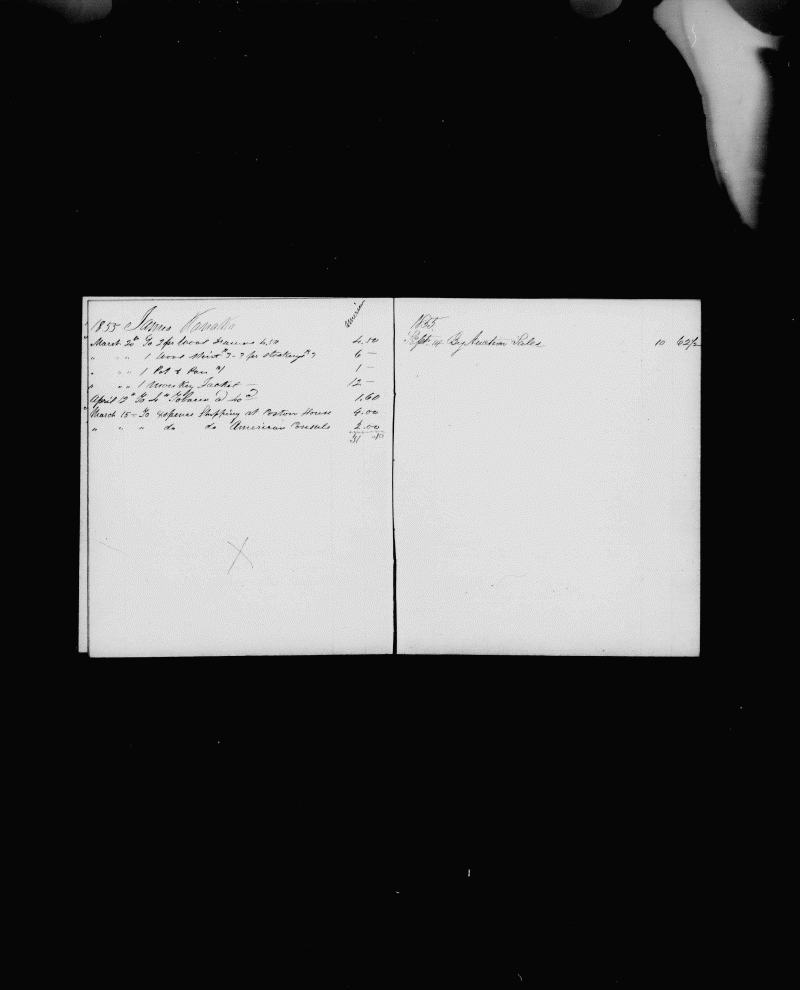 1855 James Kanaka
March 20th To 2 pr Wool Drawers 4.50 4.50
" " " 1 Wool Shirt $3 - 3 pr Stockings $3 6 -
" " " 1 Pot & Pan $1 1 -
" " " 1 Monkey Jacket - 12 -
April 12th To 4 lb Tobacco @ 40c 1.60
March 15 - To expense Shipping at Boston House 4.00
" " " do do American Vessels 2.00
31 10
1855
Sept 14 By Auction Sales 10 62½